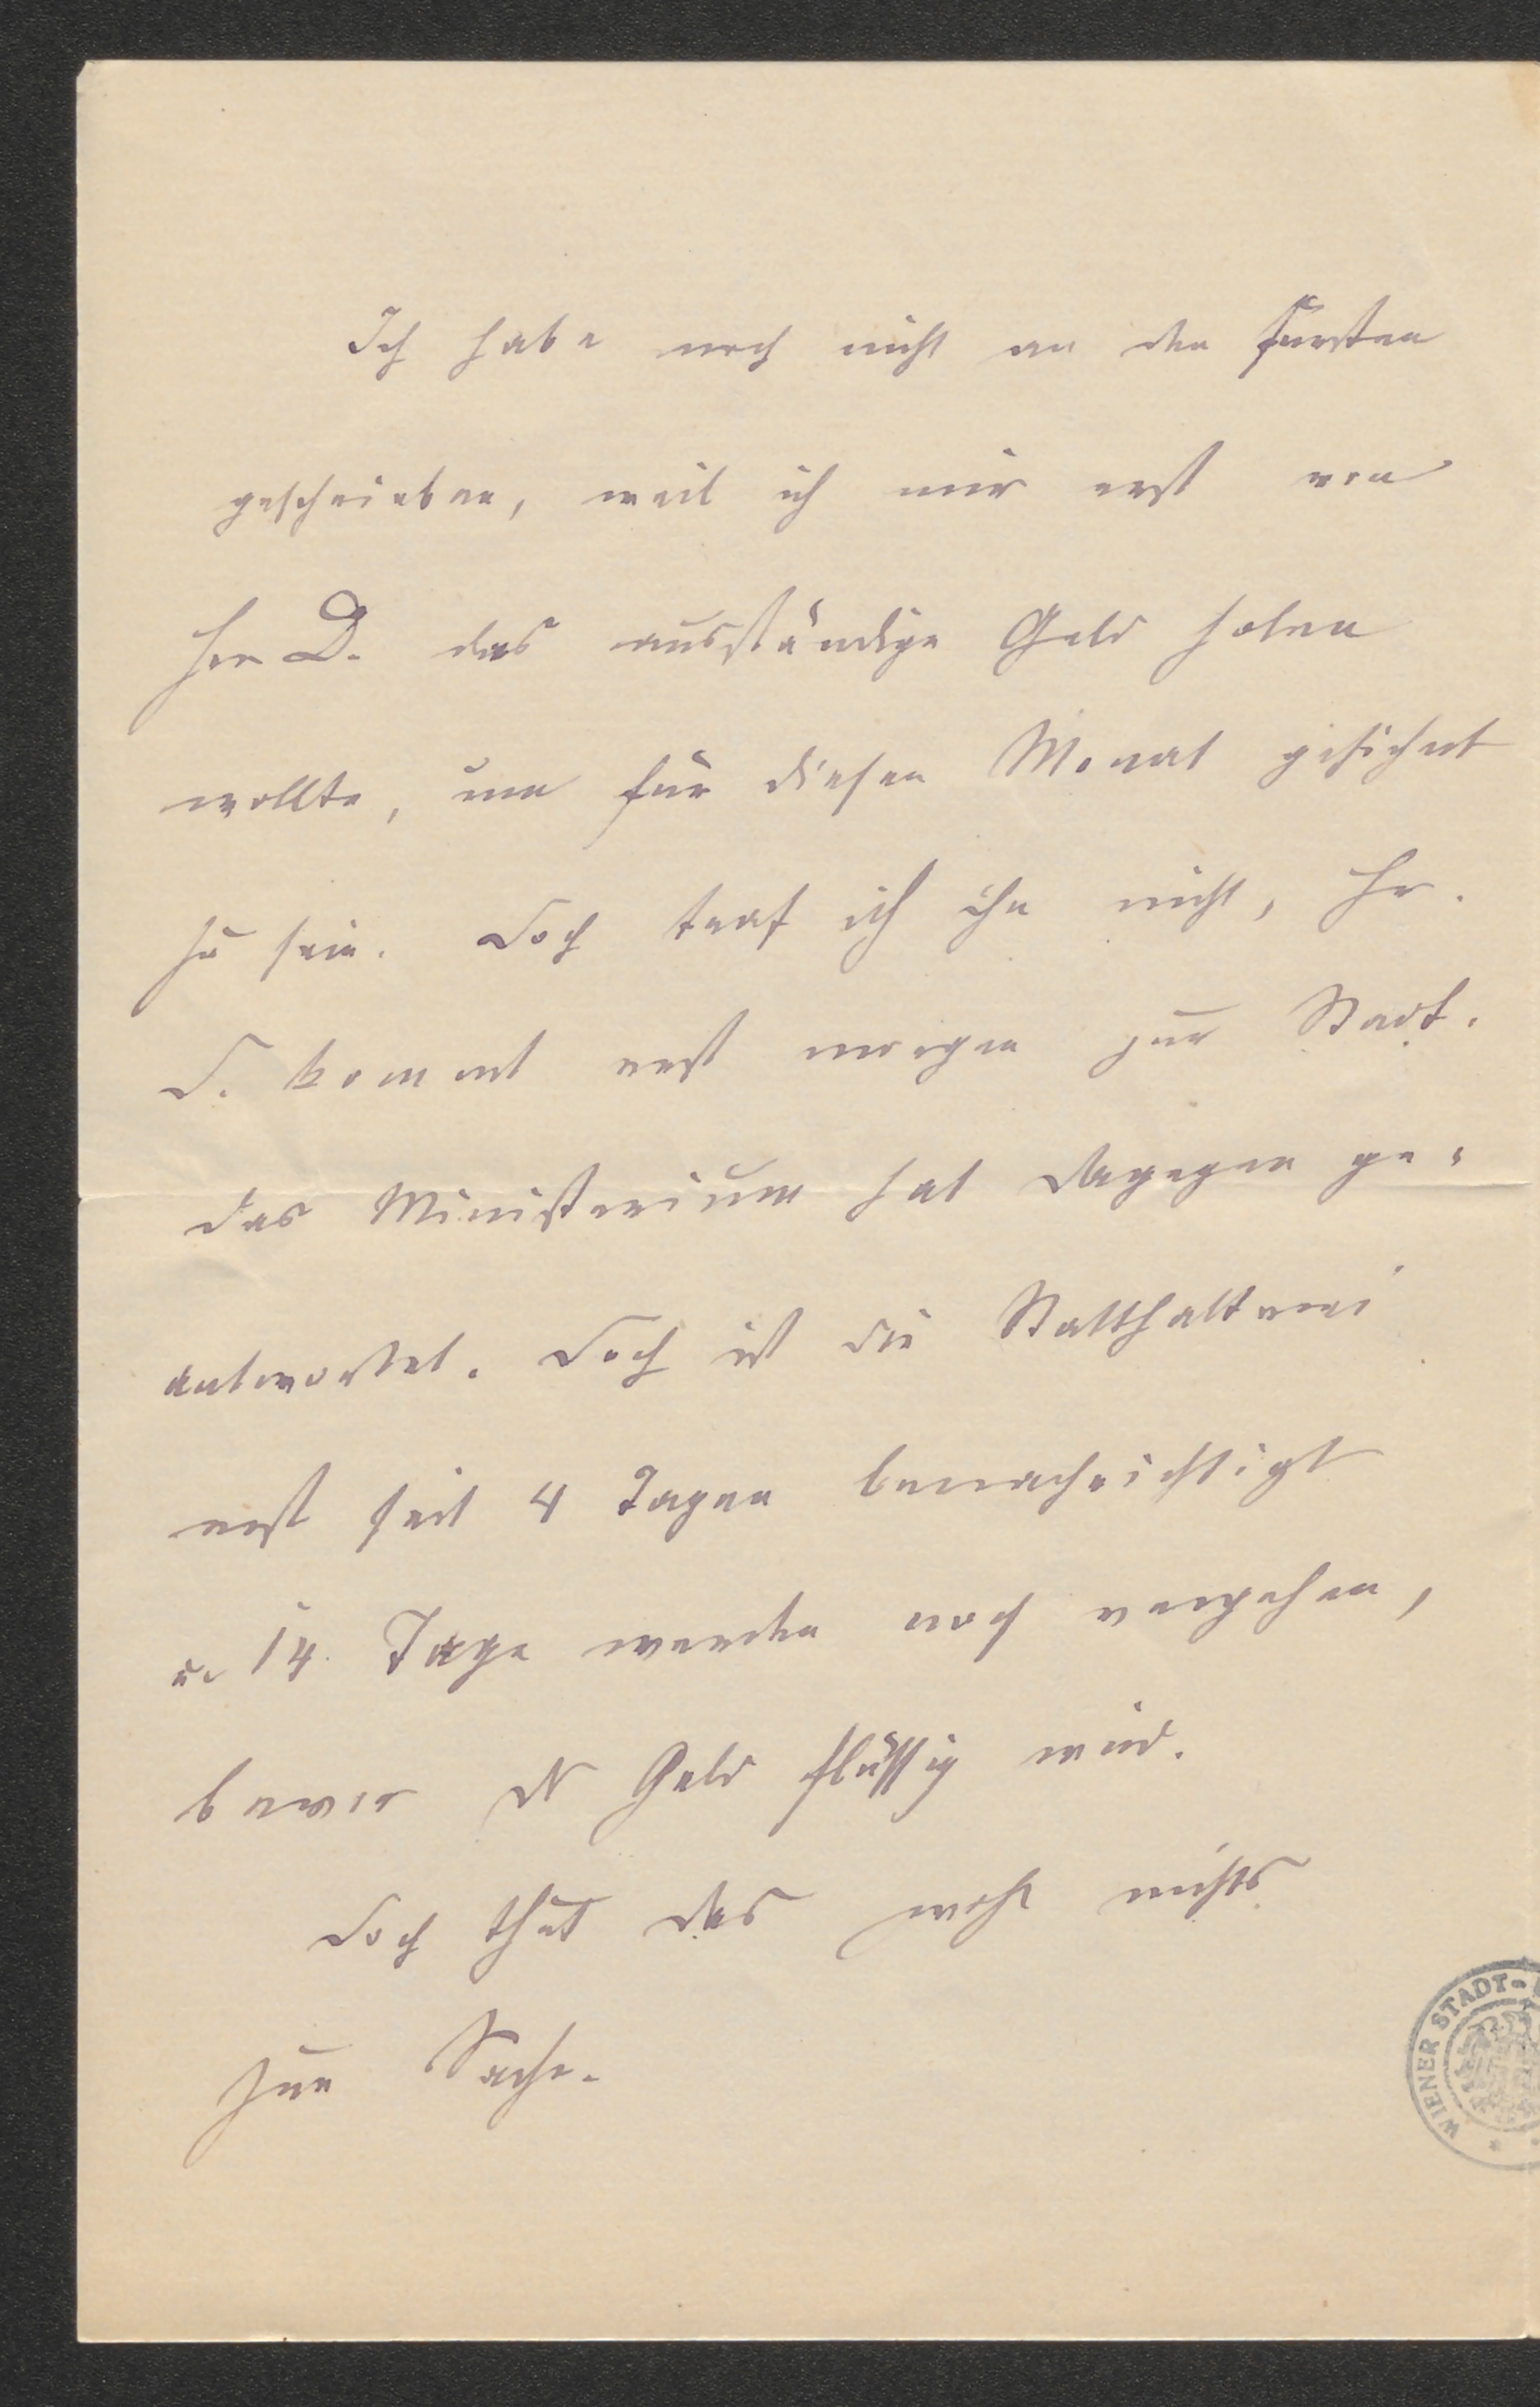 Ich habe noch nicht an den Fürsten
geschrieben, weil ich mir erst von
Hrn D. das ausständige Geld holen
wollte, um für diesen Monat gesichert
zu sein. Doch traf ich ihn nicht, Hr.
D. kommt erst morgen zur Stadt.
Das Ministerium hat dagegen ge-
antwortet. Doch ist die Statthalterei
erst seit 4 Tagen benachrichtigt
u. 14 Tage werden noch vergehen,
bevor ds Geld flüssig wird.
Doch thut das wohl nichts
zur Sache.
WIENER STADT-